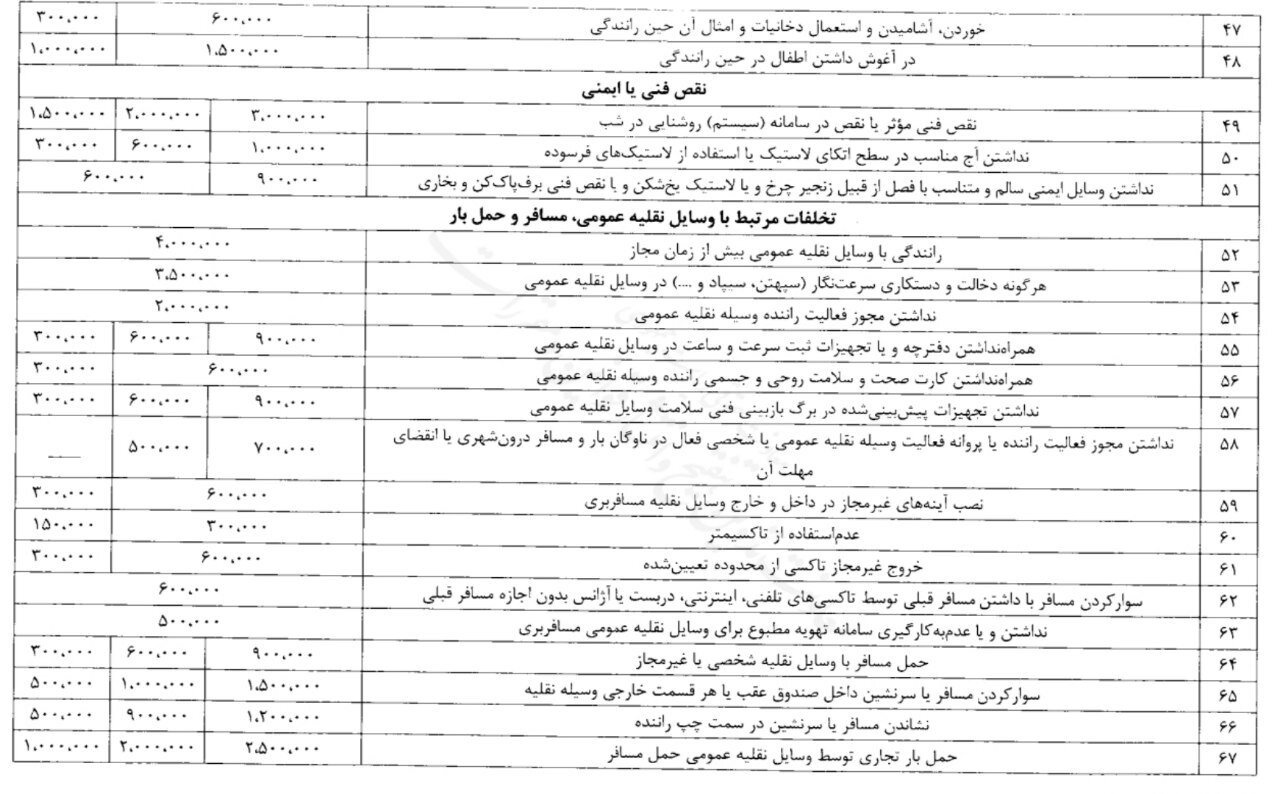 ۴۷ خوردن، آشامیدن و استعمال دخانیات و امثال آن حین رانندگی ۶۰۰،۰۰۰ ۳۰۰،۰۰۰
۴۸ در آغوش داشتن اطفال در حین رانندگی ۱،۵۰۰،۰۰۰ ۱،۰۰۰،۰۰۰
نقص فنی یا ایمنی
۴۹ نقص فنی مؤثر یا نقص در سامانه (سیستم) روشنایی در شب ۳،۰۰۰،۰۰۰ ۲،۰۰۰،۰۰۰ ۱،۵۰۰،۰۰۰
۵۰ نداشتن آج مناسب در سطح اتکای لاستیک یا استفاده از لاستیک‌های فرسوده ۱،۰۰۰،۰۰۰ ۶۰۰،۰۰۰ ۳۰۰،۰۰۰
۵۱ نداشتن وسایل ایمنی سالم و متناسب با فصل از قبیل زنجیر چرخ و یا لاستیک یخ‌شکن و یا نقص فنی برف‌پاک‌کن و بخاری ۹۰۰،۰۰۰ ۶۰۰،۰۰۰
تخلفات مرتبط با وسایل نقلیه عمومی، مسافر و حمل بار
۵۲ رانندگی با وسایل نقلیه عمومی بیش از زمان مجاز ۴،۰۰۰،۰۰۰
۵۳ هرگونه دخالت و دستکاری سرعت‌نگار (سپهتن، سیپاد و ....) در وسایل نقلیه عمومی ۳،۵۰۰،۰۰۰
۵۴ نداشتن مجوز فعالیت راننده وسیله نقلیه عمومی ۲،۰۰۰،۰۰۰
۵۵ همراه‌نداشتن دفترچه و یا تجهیزات ثبت سرعت و ساعت در وسایل نقلیه عمومی ۹۰۰،۰۰۰ ۶۰۰،۰۰۰ ۳۰۰،۰۰۰
۵۶ همراه‌نداشتن کارت صحت و سلامت روحی و جسمی راننده وسیله نقلیه عمومی ۶۰۰،۰۰۰ ۳۰۰،۰۰۰
۵۷ نداشتن تجهیزات پیش‌بینی‌شده در برگ بازبینی فنی سلامت وسایل نقلیه عمومی ۹۰۰،۰۰۰ ۶۰۰،۰۰۰ ۳۰۰،۰۰۰
۵۸ نداشتن مجوز فعالیت راننده یا پروانه فعالیت وسیله نقلیه عمومی یا شخصی فعال در ناوگان بار و مسافر درون‌شهری یا انقضای ۷۰۰،۰۰۰ ۵۰۰،۰۰۰ ——
مهلت آن
۵۹ نصب آینه‌های غیرمجاز در داخل و خارج وسایل نقلیه مسافربری ۶۰۰،۰۰۰ ۳۰۰،۰۰۰
۶۰ عدم‌استفاده از تاکسیمتر ۳۰۰،۰۰۰ ۱۵۰،۰۰۰
۶۱ خروج غیرمجاز تاکسی از محدوده تعیین‌شده ۶۰۰،۰۰۰ ۳۰۰،۰۰۰
۶۲ سوارکردن مسافر با داشتن مسافر قبلی توسط تاکسی‌های تلفنی، اینترنتی، دربست یا آژانس بدون اجازه مسافر قبلی ۶۰۰،۰۰۰
۶۳ نداشتن و یا عدم‌به‌کارگیری سامانه تهویه مطبوع برای وسایل نقلیه عمومی مسافربری ۵۰۰،۰۰۰
۶۴ حمل مسافر با وسایل نقلیه شخصی یا غیرمجاز ۹۰۰،۰۰۰ ۶۰۰،۰۰۰ ۳۰۰،۰۰۰
۶۵ سوارکردن مسافر یا سرنشین داخل صندوق عقب یا هر قسمت خارجی وسیله نقلیه ۱،۵۰۰،۰۰۰ ۱،۰۰۰،۰۰۰ ۵۰۰،۰۰۰
۶۶ نشاندن مسافر یا سرنشین در سمت چپ راننده ۱،۲۰۰،۰۰۰ ۹۰۰،۰۰۰ ۵۰۰،۰۰۰
۶۷ حمل بار تجاری توسط وسایل نقلیه عمومی حمل مسافر ۲،۵۰۰،۰۰۰ ۲،۰۰۰،۰۰۰ ۱،۰۰۰،۰۰۰